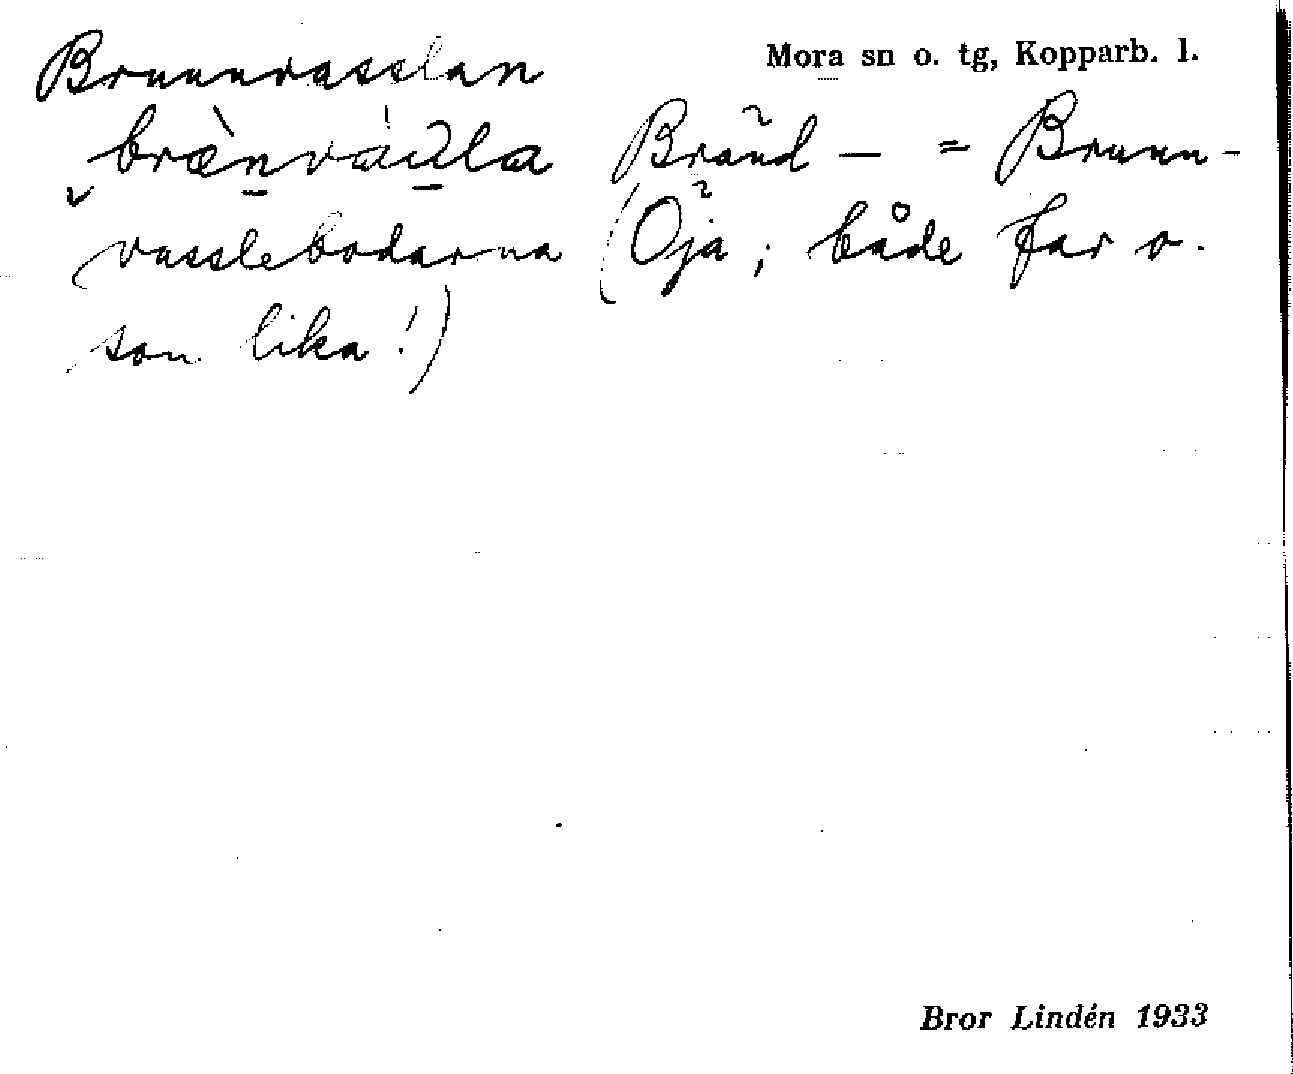 Brunnvasslan
Mora sn o. tg, Kopparb. l.
bræ̀nváɹla Bränd — = Brunn-
vasslebodarna (Öja; både far o.
son lika!)
Bror Lindén 1933